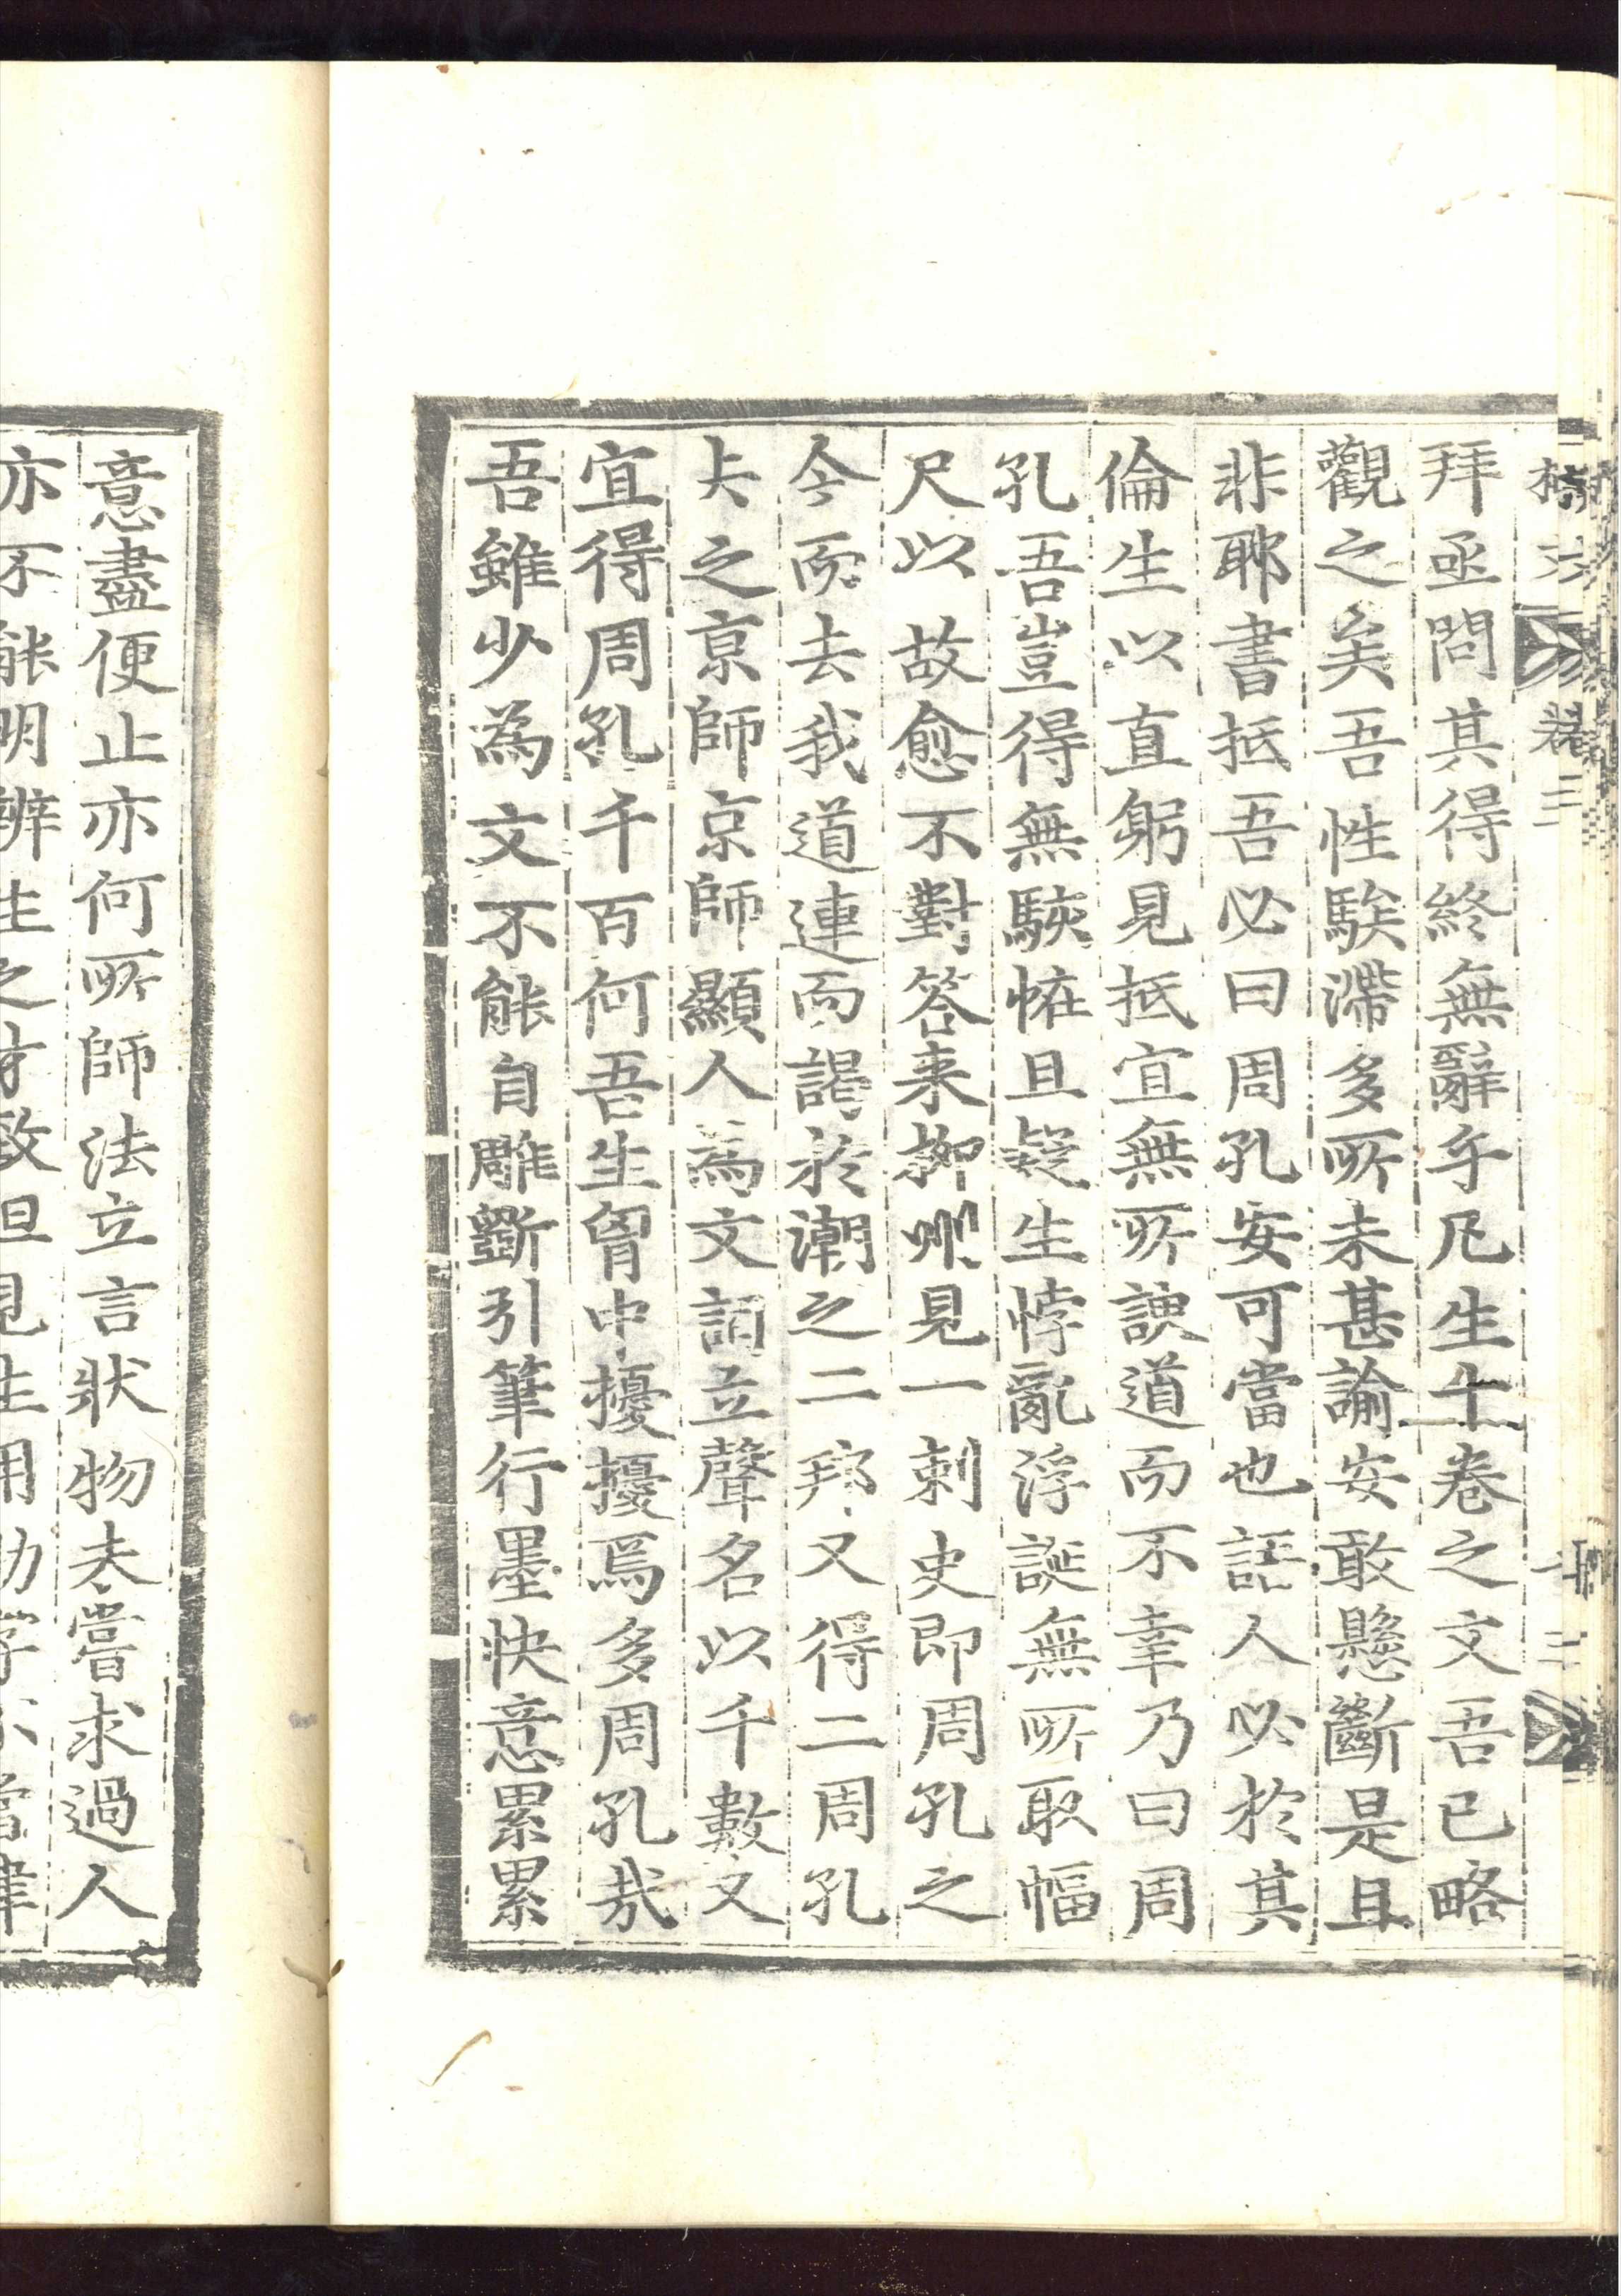 文 卷三 十二
拜亟問其得終無辭乎凡生十卷之文吾已略
觀之矣吾性騃滯多所未甚諭安敢懸斷是且
非耶書抵吾必曰周孔安可當也語人必於其
倫生以直躬見抵宜無所諛道而不幸乃曰周
孔吾豈得無駭恠且疑生悖亂浮誕無所取幅
尺以故愈不對答来柳州見一刺史即周孔之
今而去我道連而謁於潮之二邦又得二周孔
去之京師京師顯人為文詞立聲名以千數又
宜得周孔千百何吾生胷中擾擾焉多周孔哉
吾雖少為文不能自雕斲引筆行墨快意累累
意盡便止亦何所師法立言狀物未嘗求過人
亦不能明辨生之才致但見生用助字不當律